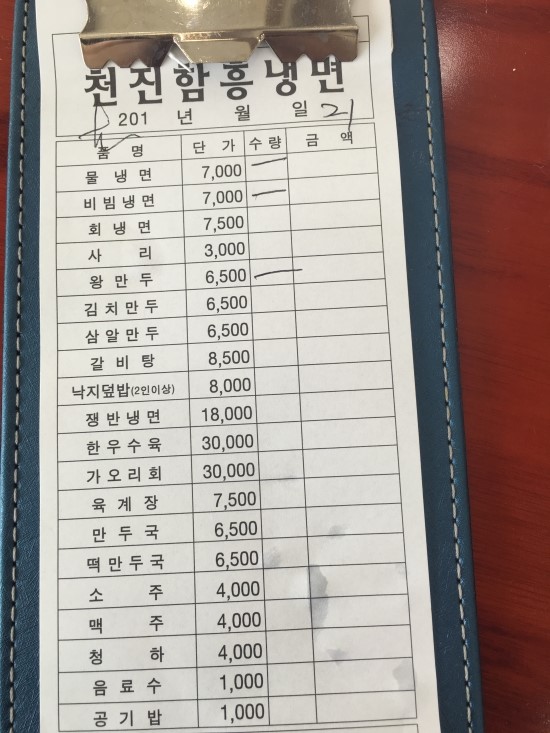 천진함흥냉면
201 년 월 일 21
품 명 단 가 수 량 금 액
물 냉 면 7,000 —
비빔냉면 7,000 —
회 냉 면 7,500
사 리 3,000
왕 만 두 6,500 —
김치만두 6,500
삼알만두 6,500
갈 비 탕 8,500
낙지덮밥(2인이상) 8,000
쟁반냉면 18,000
한우수육 30,000
가오리회 30,000
육 계 장 7,500
만 두 국 6,500
떡만두국 6,500
소 주 4,000
맥 주 4,000
청 하 4,000
음 료 수 1,000
공 기 밥 1,000